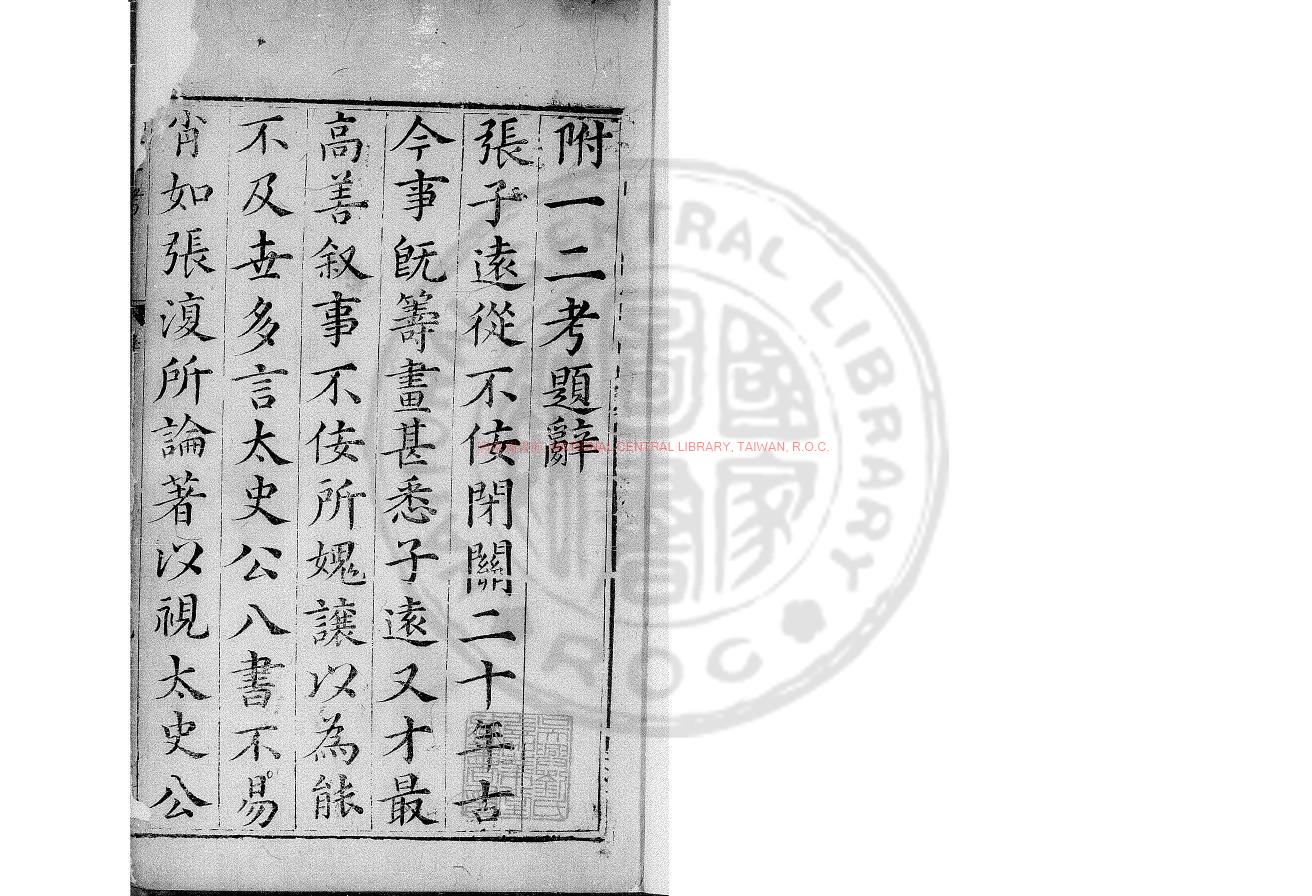 附一二考題辭
張子遠從不佞閉關二十年古
今事旣籌畫甚悉子遠又才最
高善叙事不佞所媿讓以為能
不及世多言太史公八書不易
肯如張澓所論著以視太史公
NATIONAL CENTRAL LIBRARY, TAIWAN, R.O.C.
CENTRAL LIBRARY
R.O.C.